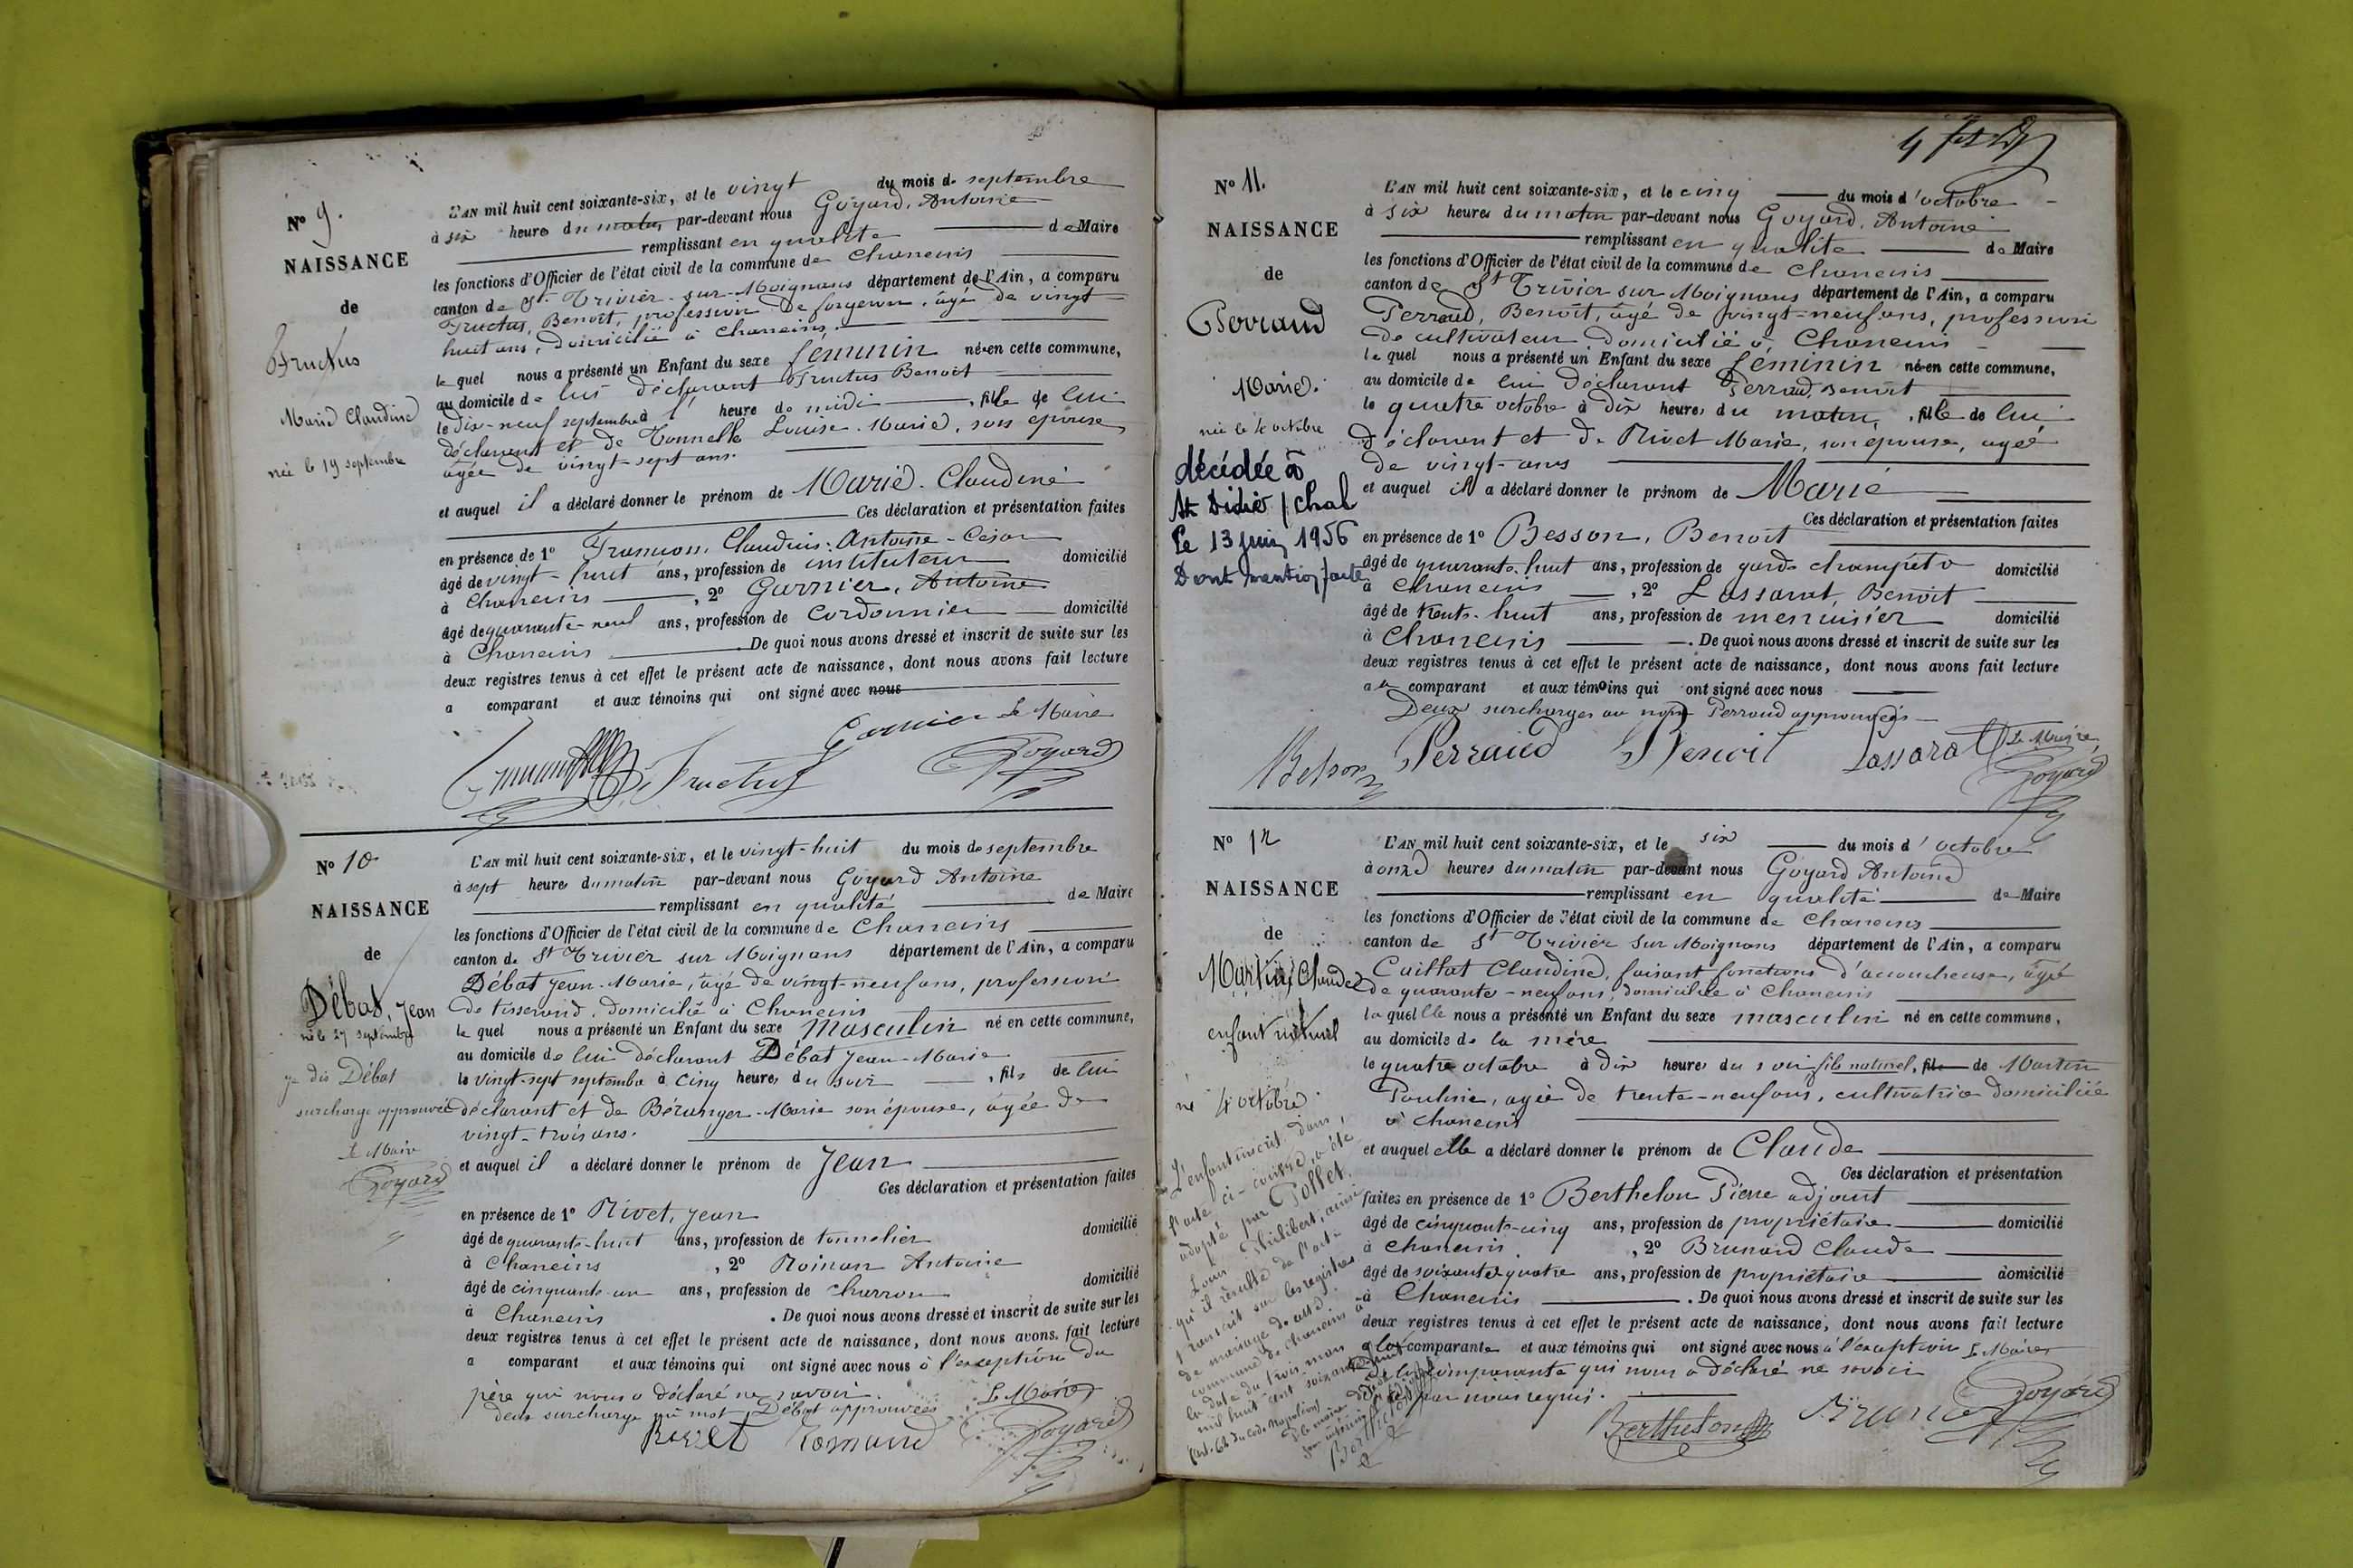 N° 9.
NAISSANCE
de
Fructus
Marie Claudine
née le 19 septembre
L'AN mil huit cent soixante-six, et le vingt du mois de septembre
à six heures du matin par-devant nous Goyard, Antoine
remplissant en qualité de Maire
les fonctions d'Officier de l'état civil de la commune de Chaneins
canton de St Trivier-sur-Moignans département de l'Ain, a comparu
Fructus, Benoît, profession de forgeron, âgé de vingt-
huit ans, domicilié à Chaneins.
le quel nous a présenté un Enfant du sexe féminin née en cette commune,
au domicile de lui déclarant Fructus Benoit
le dix-neuf septembre à l' heure de midi, fille de lui
déclarant et de Tonnelle Louise-Marie, son épouse,
âgée de vingt-sept ans.
et auquel il a déclaré donner le prénom de Marie-Claudine
Ces déclaration et présentation faites
en présence de 1° Claudius-Antoine-César
âgé de vingt-huit ans, profession de instituteur domicilié
à Chaneins, 2° Garnier, Antoine
âgé de quarante-neuf ans, profession de Cordonnier domicilié
à Chaneins De quoi nous avons dressé et inscrit de suite sur les
deux registres tenus à cet effet le présent acte de naissance, dont nous avons fait lecture
a comparant et aux témoins qui ont signé avec nous
Garnier Le Maire
Fructus Goyard
N° 10
NAISSANCE
de
Débat, Jean
né le 27 septembre
je dis Débat
surcharge approuvée
Le Maire
Goyard
L'AN mil huit cent soixante-six, et le vingt-huit du mois de septembre
à sept heures du matin par-devant nous Goyard Antoine
remplissant en qualité de Maire
les fonctions d'Officier de l'état civil de la commune de Chaneins
canton de St Trivier sur Moignans département de l'Ain, a comparu
Débat Jean-Marie, âgé de vingt-neuf ans, profession
de tisserand, domicilié à Chaneins
le quel nous a présenté un Enfant du sexe Masculin né en cette commune,
au domicile de lui déclarant Débat Jean-Marie
le vingt-sept septembre à cinq heures du soir, fils de lui
déclarant et de Béranger-Marie son épouse, âgée de
vingt-trois ans.
et auquel il a déclaré donner le prénom de Jean
Ces déclaration et présentation faites
en présence de 1° Rivet, Jean
âgé de quarante-huit ans, profession de tonnelier domicilié
à Chaneins, 2° Antoine
âgé de cinquante-un ans, profession de Charron domicilié
à Chaneins. De quoi nous avons dressé et inscrit de suite sur les
deux registres tenus à cet effet le présent acte de naissance, dont nous avons fait lecture
a comparant et aux témoins qui ont signé avec nous à l'exception du
père qui nous a déclaré ne savoir. Le Maire
deux surcharge au mot Débat approuvées
Rivet Goyard
4
N° 11.
NAISSANCE
de
Perraud
Marie.
née le 4 octobre
décédée à
St Didier / Chal
Le 13 juin 1956
Dont mention faite
L'AN mil huit cent soixante-six, et le cinq du mois d'octobre
à six heures du matin par-devant nous Goyard, Antoine
remplissant en qualité de Maire
les fonctions d'Officier de l'état civil de la commune de Chaneins
canton de St Trivier sur Moignans département de l'Ain, a comparu
Perraud, Benoît, âgé de vingt-neuf ans, profession
de cultivateur domicilié à Chaneins
le quel nous a présenté un Enfant du sexe féminin née en cette commune,
au domicile de lui déclarant Perraud, Benoît
le quatre octobre à dix heures du matin, fille de lui
déclarant et de Rivet Marie, son épouse, agée
de vingt-ans
et auquel il a déclaré donner le prénom de Marie
Ces déclaration et présentation faites
en présence de 1° Besson, Benoit
âgé de quarante-huit ans, profession de garde champêtre domicilié
à Chaneins, 2° Lassarat, Benoît
âgé de trente-huit ans, profession de menuisier domicilié
à Chaneins. De quoi nous avons dressé et inscrit de suite sur les
deux registres tenus à cet effet le présent acte de naissance, dont nous avons fait lecture
au comparant et aux témoins qui ont signé avec nous
Deux surcharges au nom Perraud approuvées
Besson Perraud Benoit Lassarat Le Maire
Goyard
N° 12
NAISSANCE
de
Martin, Claude
enfant naturel
né 4 octobre.
L'enfant inscrit dans
l'acte ci-contre, a été
adopté par Pollet
Louis Philibert, ainsi
qu'il résulte de l'acte
transcrit sur les registres
de mariage de cette
commune de Chaneins à
la date du trois mars
mil huit cent soixante
(art. 62 du code Napoléon)
Berthelon
L'AN mil huit cent soixante-six, et le six du mois d'octobre
à onze heures du matin par-devant nous Goyard Antoine
remplissant en qualité de Maire
les fonctions d'Officier de l'état civil de la commune de Chaneins
canton de St Trivier sur Moignans département de l'Ain, a comparu
Caillat Claudine, faisant fonctions d'accoucheuse, âgée
de quarante-neuf ans, domiciliée à Chaneins
la quelle nous a présenté un Enfant du sexe masculin né en cette commune,
au domicile de la mère
le quatre octobre à dix heures du soir fils naturel, fils de Martin
Pauline, agée de trente-neuf ans, cultivatrice domiciliée
à Chaneins
et auquel elle a déclaré donner le prénom de Claude
Ces déclaration et présentation
faites en présence de 1° Berthelon Pierre adjoint
âgé de cinquante-cinq ans, profession de propriétaire domicilié
à Chaneins, 2° Brunard Claude
âgé de soixante quatre ans, profession de propriétaire domicilié
à Chaneins. De quoi nous avons dressé et inscrit de suite sur les
deux registres tenus à cet effet le présent acte de naissance, dont nous avons fait lecture
a la comparante et aux témoins qui ont signé avec nous à l'exception Le Maire
de la comparante qui nous a déclaré ne savoir
par nous requis. Goyard
Berthelon